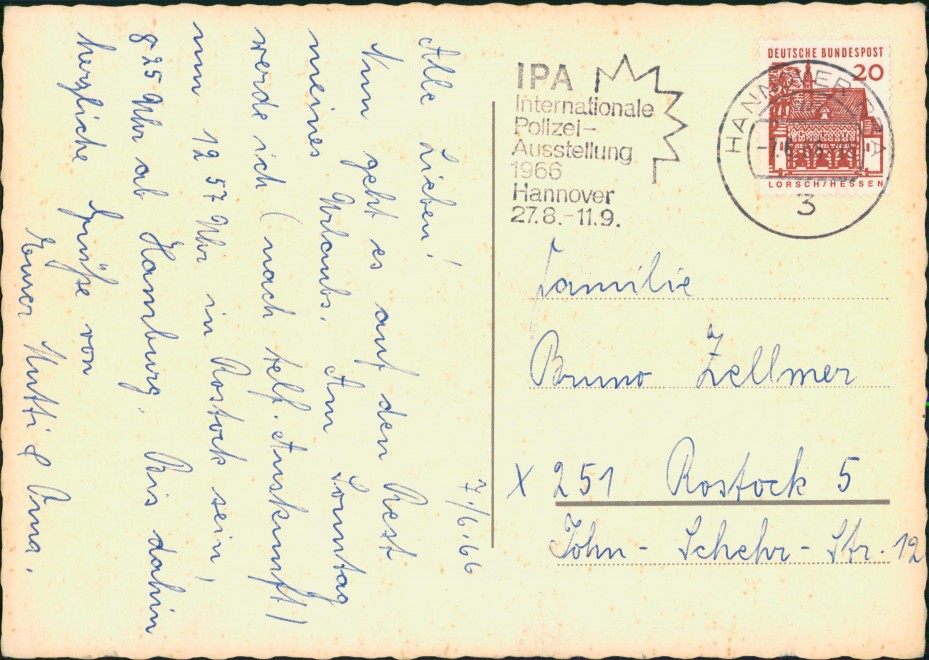 7./6.66
Alle Lieben!
Nun geht es auf den Rest
meines Urlaubs. Am Sonntag
werde ich (nach telf. Auskunft)
um 12 57 Uhr in Rostock sein,
8 25 Uhr ab Hamburg. Bis dahin
herzliche Grüße von
Eurer Mutti & Oma.
IPA
Internationale
Polizei-
Ausstellung
1966
Hannover
27.8.-11.9.
DEUTSCHE BUNDESPOST
20
LORSCH/HESSEN
HANNOVER
3
Familie
Bruno Zellmer
X 251 Rostock 5
John-Schehr-Str. 12